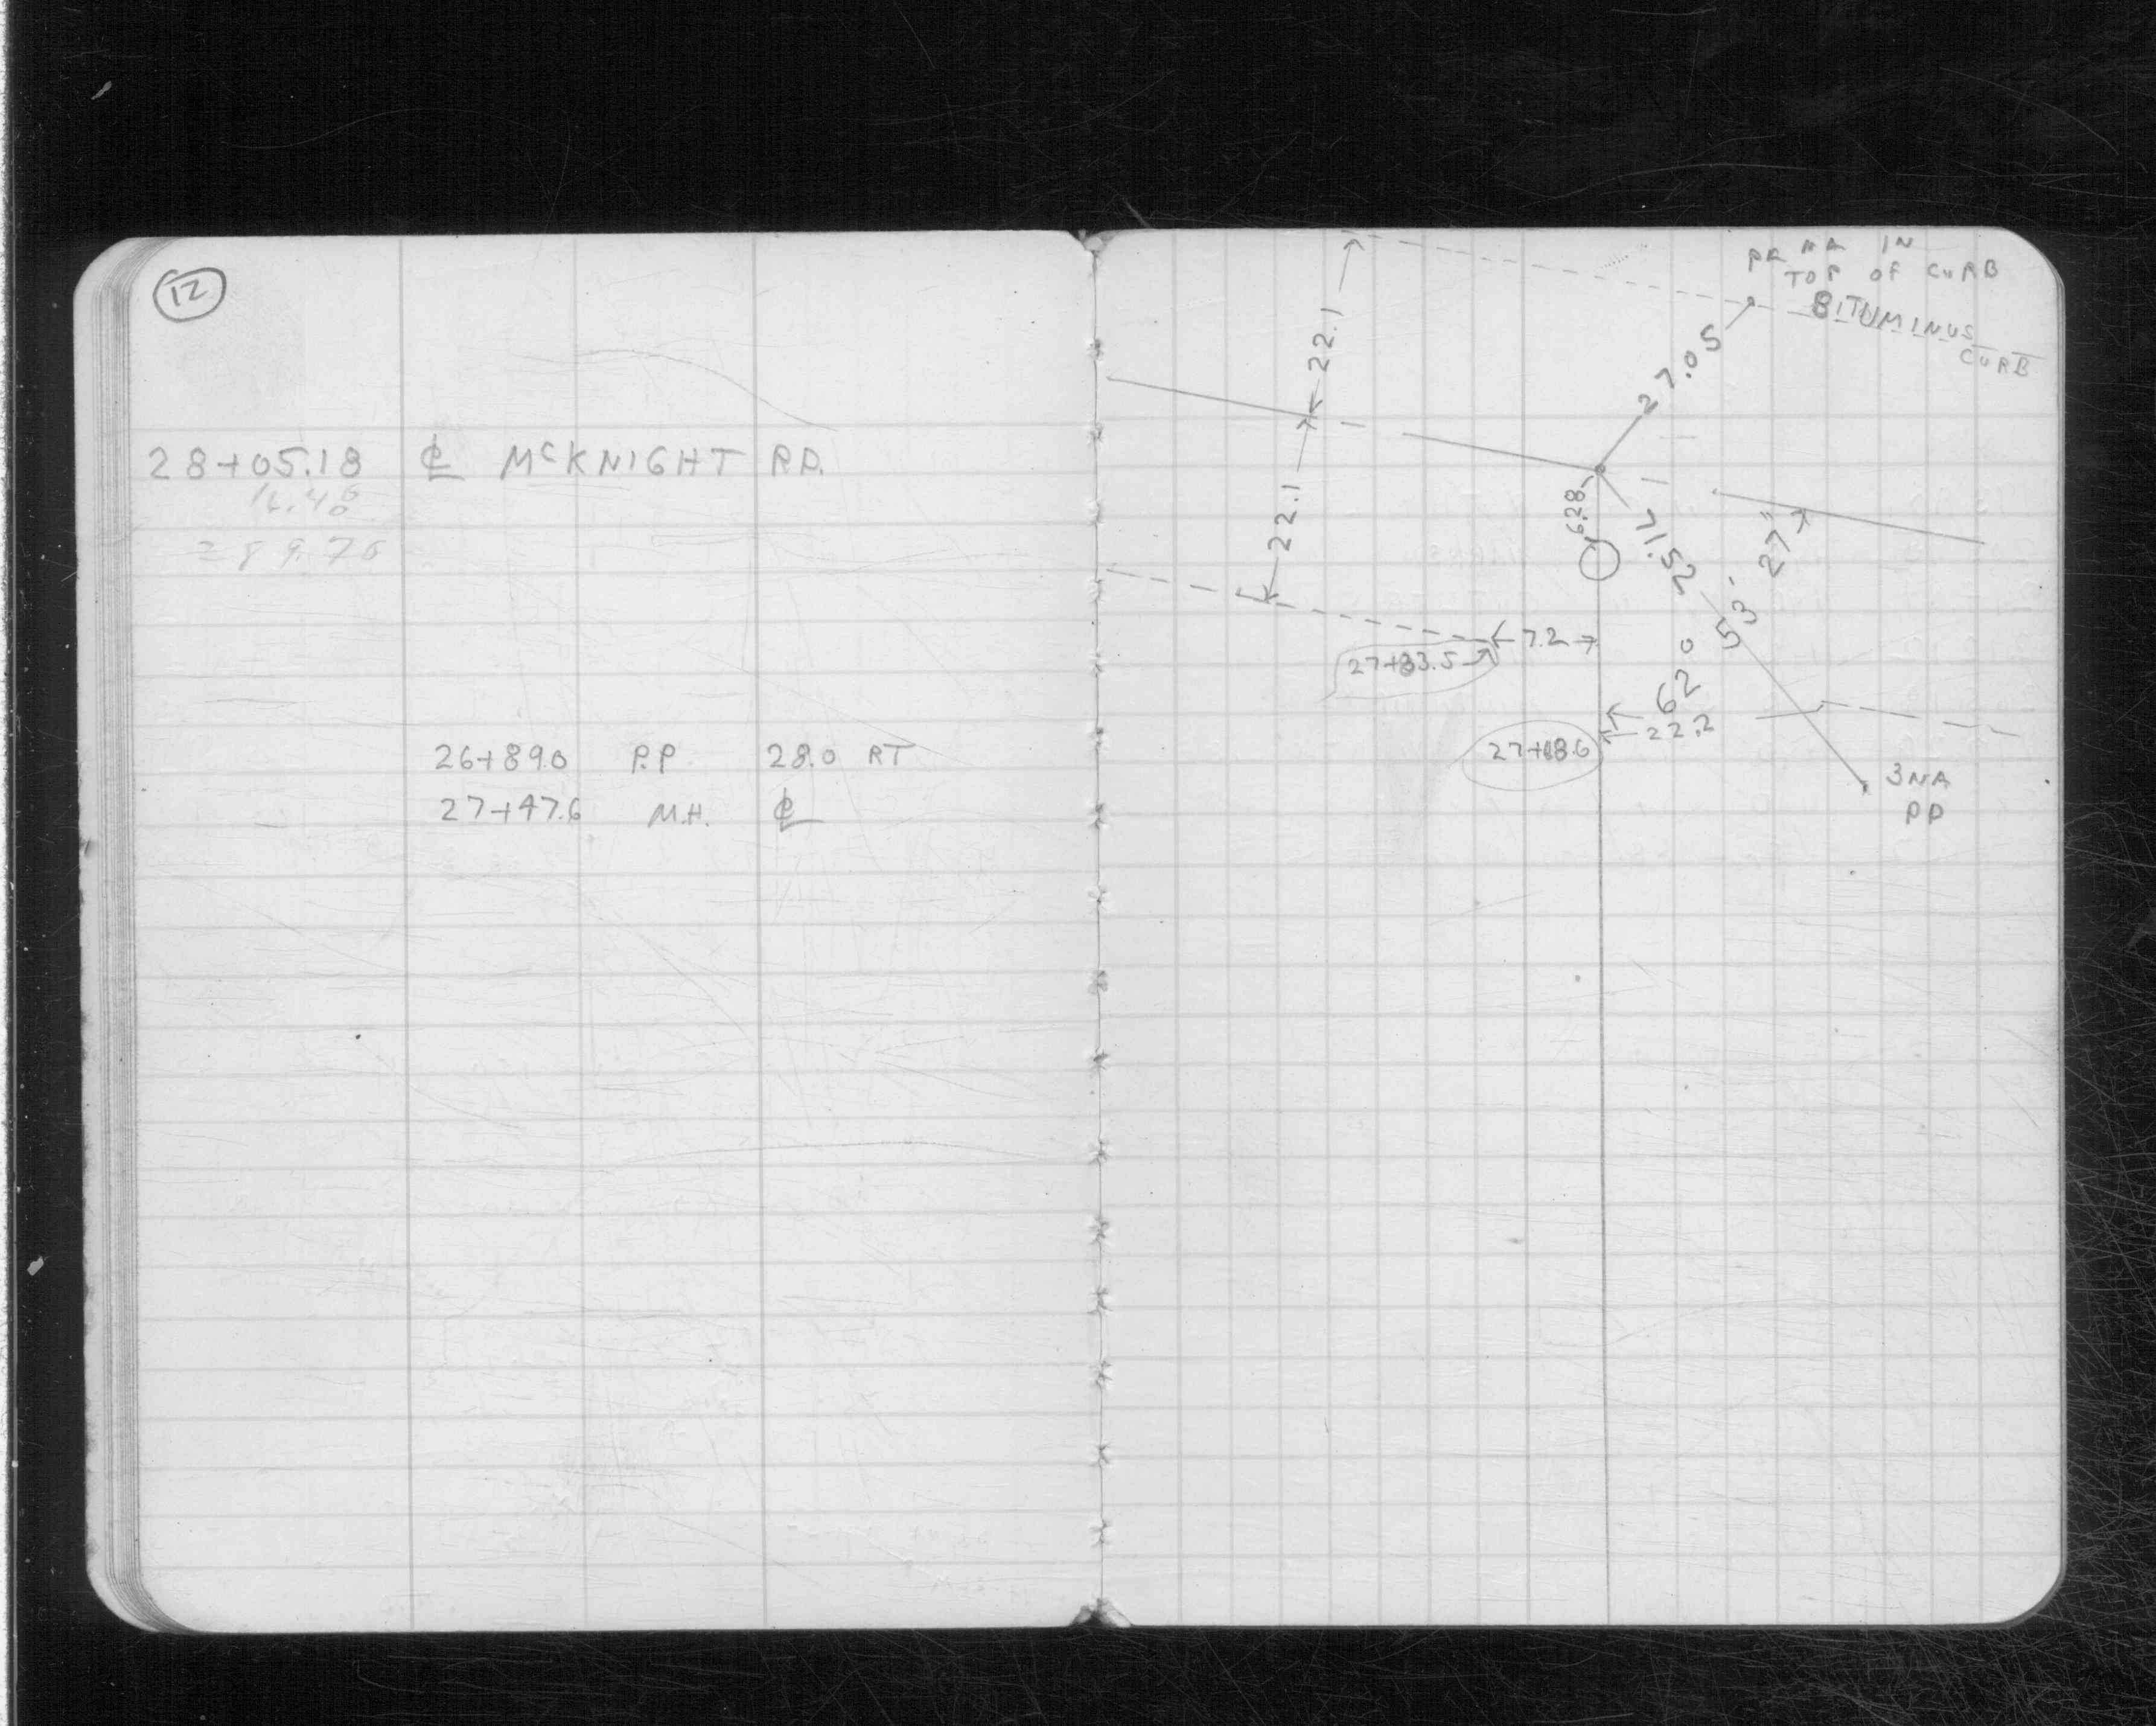 12
28+05.18 ℄ McKNIGHT RD.
16.48
28 9.70
26+89.0 P.P 28.0 RT
27+47.6 M.H. ℄
PK NA IN
TOP OF CURB
BITUMINUS
CURB
27.05
22.1
22.1
6.28
71.52
62° 53' 27"
7.2
27+83.5
22.2
27+68.6
3NA
PP